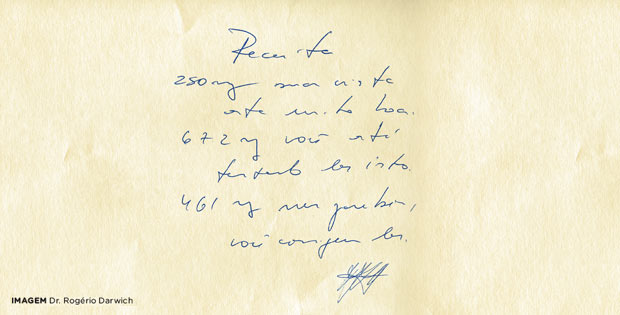 Receita
250mg sua vista
está muito boa.
672 mg você está
tentando ler isto.
461 mg parabéns,
você consegue ler.
IMAGEM Dr. Rogério Darwich